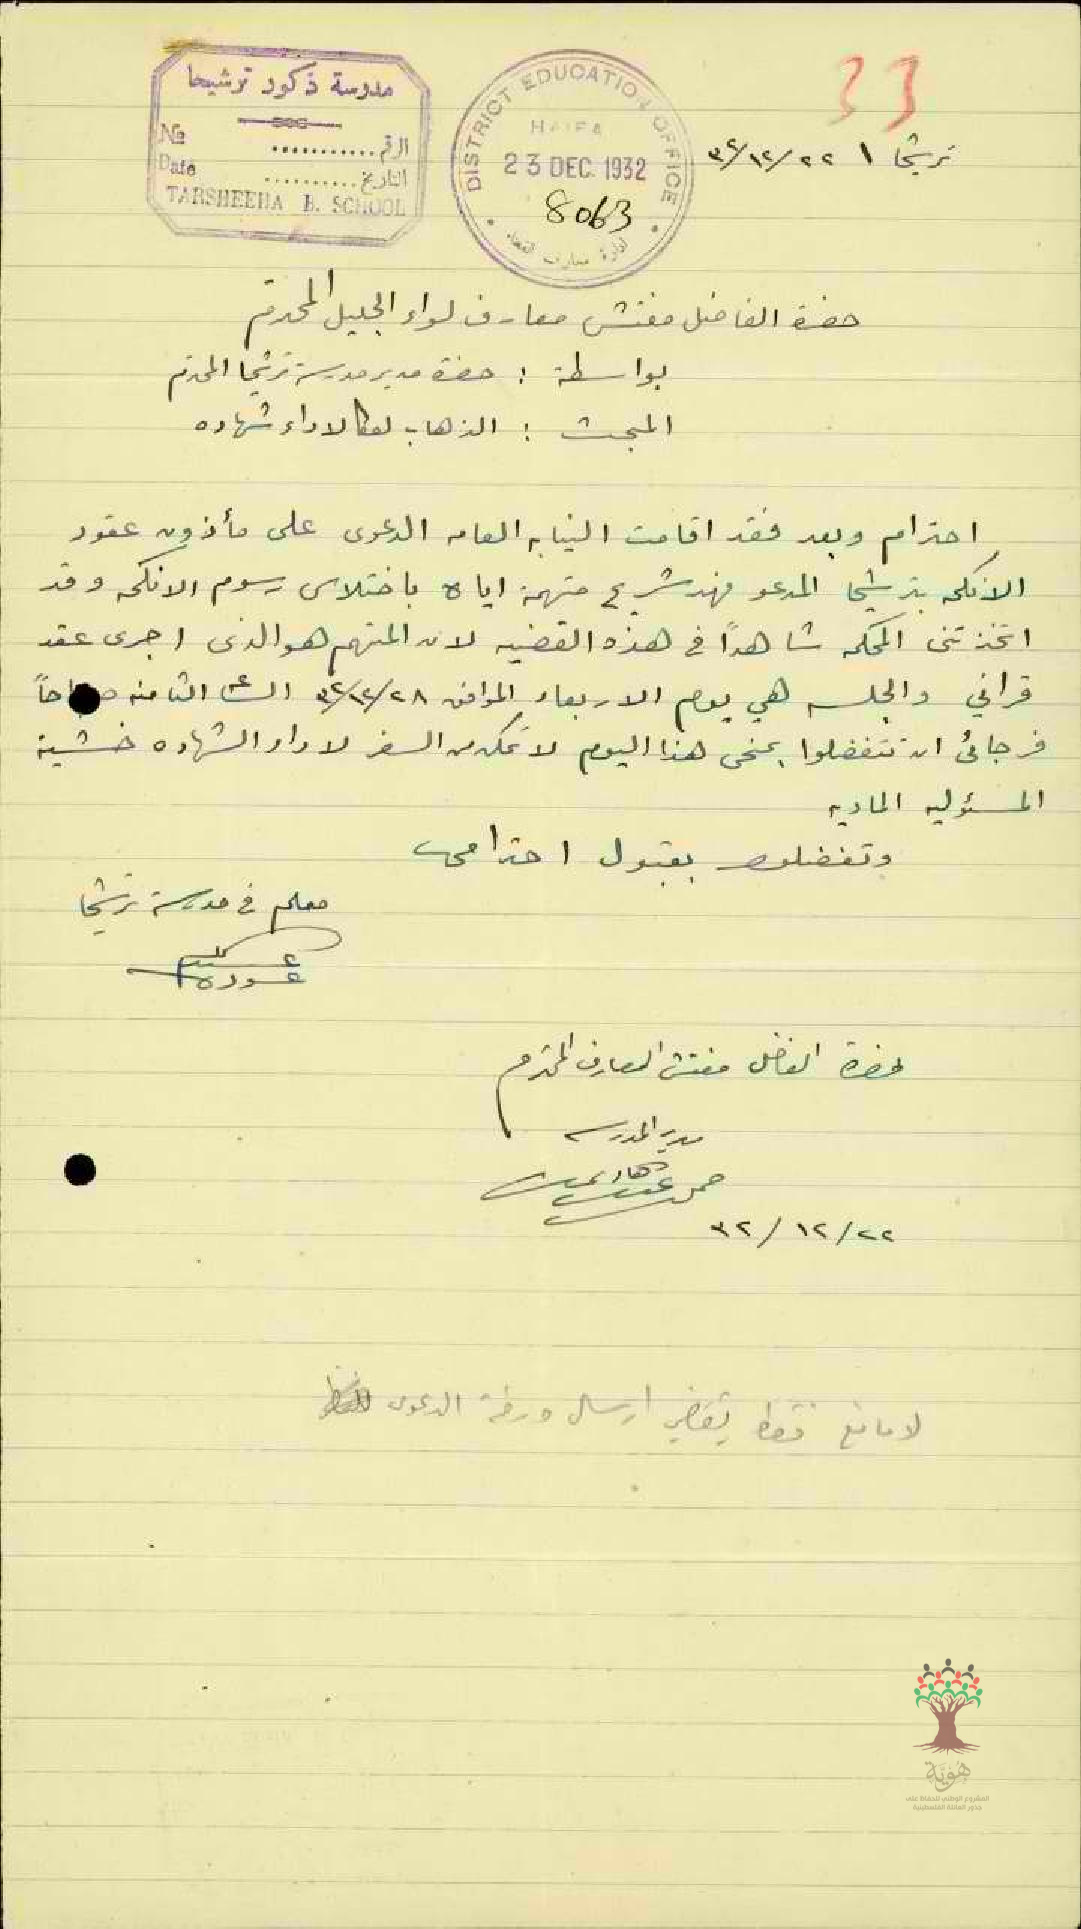 مدرسة ذكور ترشيحا
№ ........... الرقم
Date .......... التاريخ
TARSHEEHA B. SCHOOL
DISTRICT EDUCATION OFFICE
HAIFA
23 DEC. 1932
8063
ادارة معارف
33
ترشيحا ٢٢/١٢/٣٢
حضرة الفاضل مفتش معارف لواء الجليل المحترم
بواسطة : حضرة مدير مدرسة ترشيحا المحترم
المبحث : الذهاب لعكا لاداء شهاده
احترام وبعد فقد اقامت النيابه العامه الدعوى على مأذون عقود
الانكحه بترشيحا المدعو فهد شريح متهمة اياه باختلاس رسوم الانكحه وقد
اتخذتني المحكمه شاهداً في هذه القضيه لان المتهم هو الذى اجرى عقد
قراني والجلسه هي يوم الاربعاء الموافق ٢٨/١٢/٣٢ الساعة الثامنه صباحاً
فرجائى ان تتفضلوا بمنحى هذا اليوم لاتمكن من السفر لاداء الشهاده خشية
المسئوليه الماديه
وتفضلوا بقبول احترامى
معلم في مدرسة ترشيحا
عوده
حضرة الفاضل مفتش المعارف المحترم
مدير المدرسه
٢٢/١٢/٣٢
لا مانع فقط يقتضي ارسال ورقة الدعوى
هُوِيَّة
المشروع الوطني للحفاظ على
جذور العائلة الفلسطينية